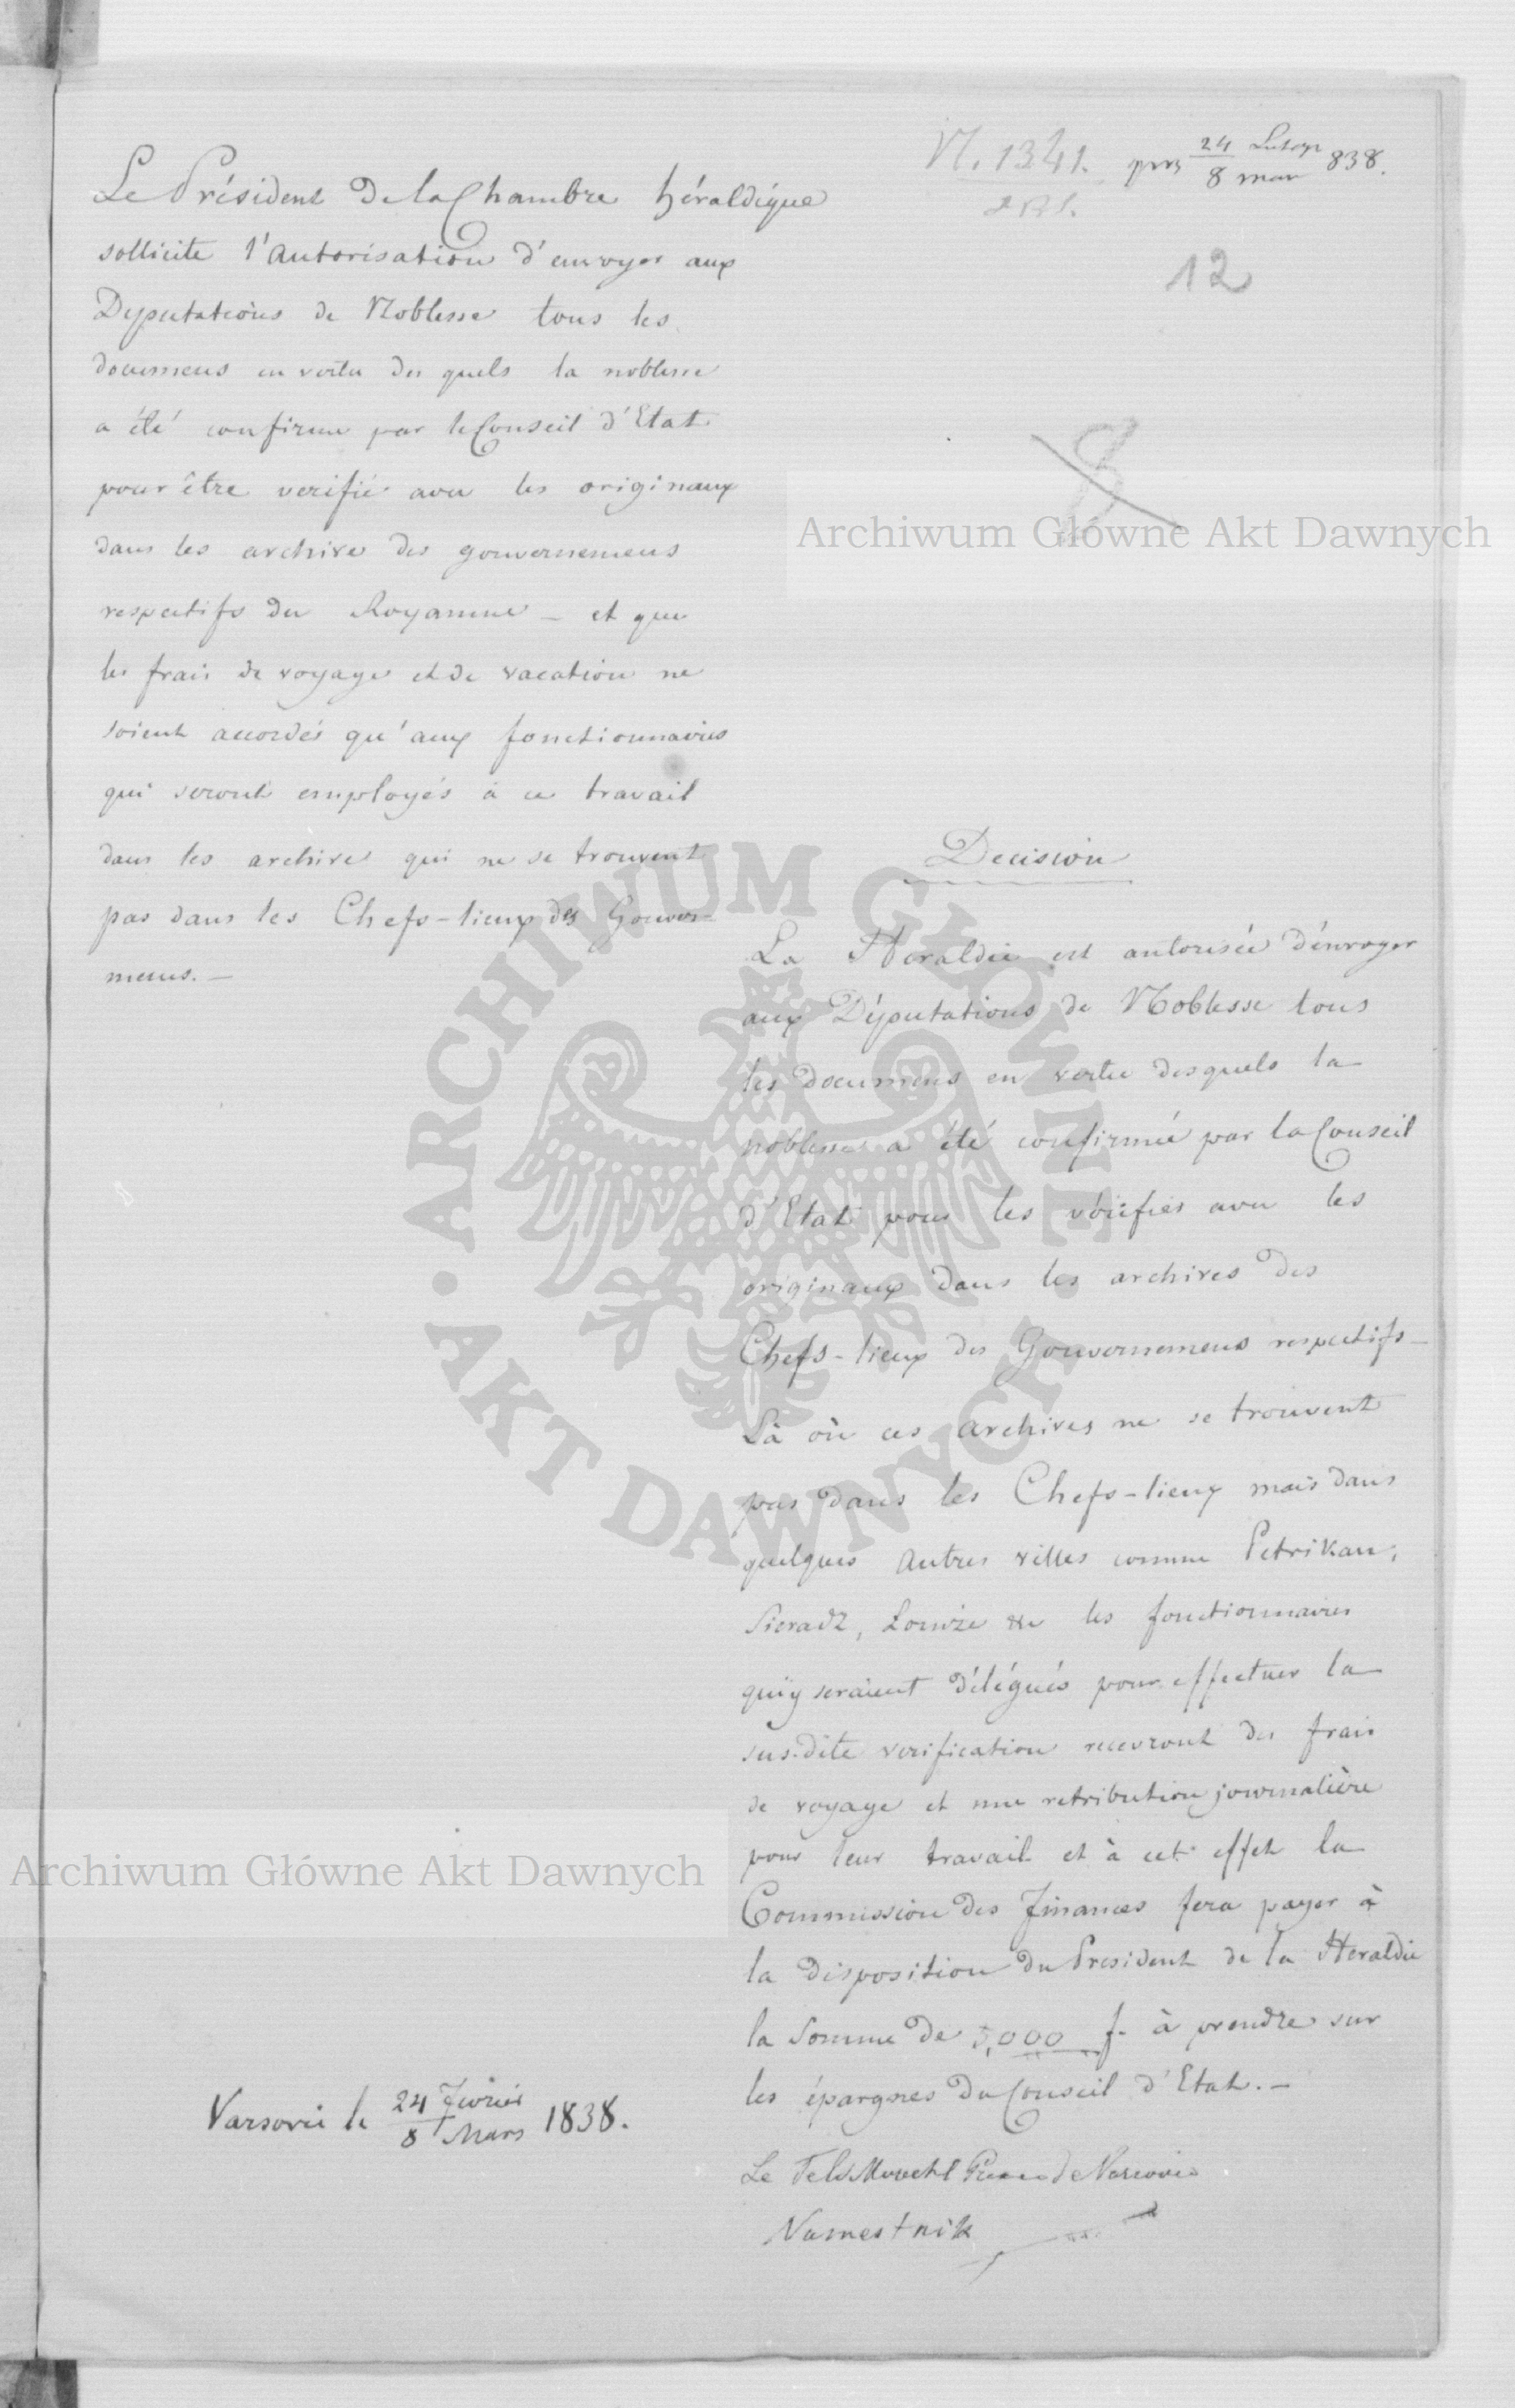 N. 1341. prs 24/8 Lutego/mar 838.
12
8
Le Président de la Chambre héraldique
sollicite l'autorisation d'envoyer aux
Deputations de Noblesse tous les
documens en vertu des quels la noblesse
a été confirmé par le Conseil d'Etat
pour être verifié avec les originaux
dans les archives des gouvernemens
respectifs du Royaume – et que
les frais de voyage et de vacation ne
soient accordés qu'aux fonctionnaires
qui seront employés à ce travail
dans les archives qui ne se trouvent
pas dans les Chefs-lieux des Gouver-
mens. –
Decision
La Heraldie est autorisée d'envoyer
aux Députations de Noblesse tous
les documens en vertu desquels la
noblesse a été confirmée par la Conseil
d'Etat pour les vérifier avec les
originaux dans les archives des
Chefs-lieux des Gouvernemens respectifs –
Là où ces archives ne se trouvent
pas dans les Chefs-lieux mais dans
quelques autres villes comme Petrikau,
Sieradz, Lomże &c les fonctionnaires
qui y seraient délégués pour effectuer la
sus-dite verification recevront des frais
de voyage et une retribution journalière
pour leur travail et à cet effet la
Commission des Finances fera payer à
la disposition du President de la Heraldie
la Somme de 5,000 f. à prendre sur
les épargnes du Conseil d'Etat. –
Varsovie le 24 Fevrier/8 Mars 1838.
Le Feld Marechl Prince de Varsovie
Namestnik
Archiwum Główne Akt Dawnych
Archiwum Główne Akt Dawnych
ARCHIWUM GŁÓWNE AKT DAWNYCH